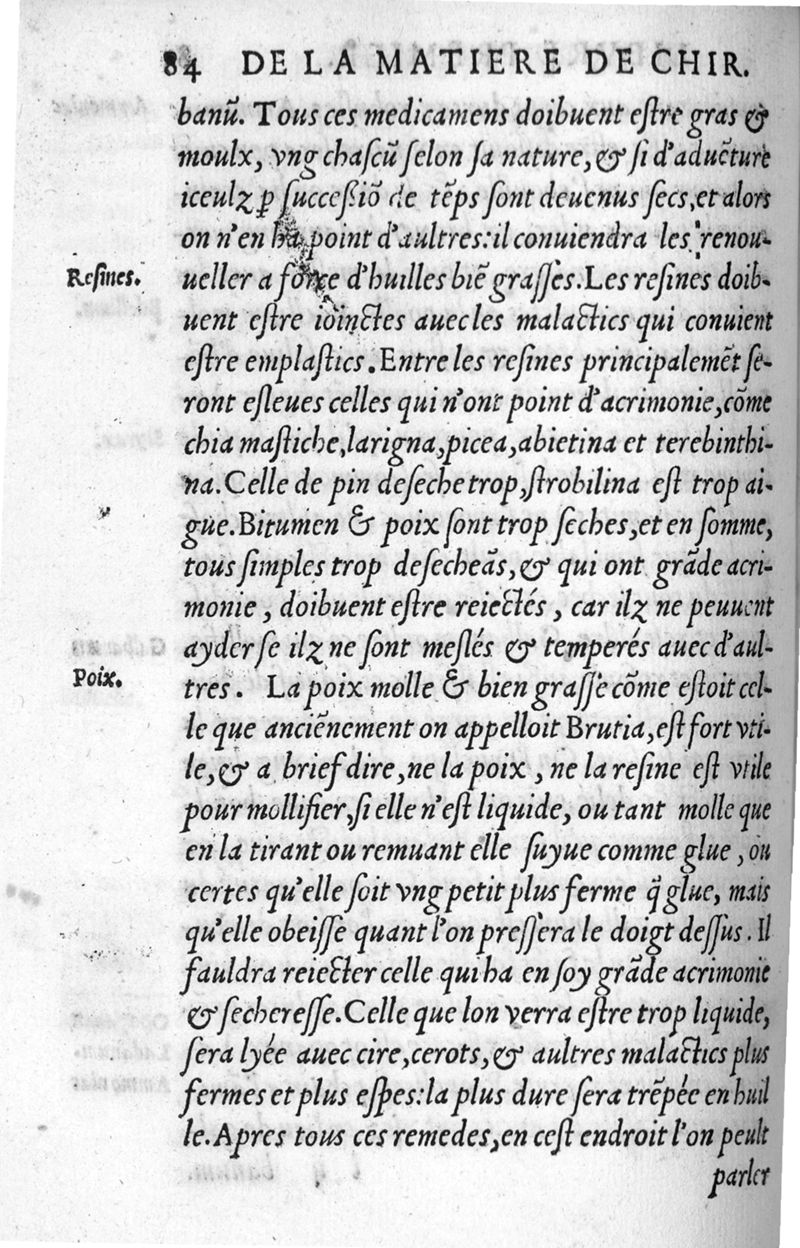 84 DE LA MATIERE DE CHIR.
banū. Tous ces medicamens doibuent eſtre gras &
moulx, vng chaſcū ſelon ſa nature, & ſi d'aduēture
iceulz ꝑ ſucceſſiō de tēps ſont deuenus ſecs, et alors
on n'en ha point d'aultres: il conuiendra les renou-
Reſines.
ueller a force d'huilles biē graſſes. Les reſines doib-
uent eſtre ioinctes auec les malactics qui conuient
eſtre emplaſtics. Entre les reſines principalemēt ſe-
ront eſleues celles qui n'ont point d'acrimonie, cōme
chia maſtiche, larigna, picea, abietina et terebinthi-
na. Celle de pin deſeche trop, ſtrobilina eſt trop ai-
gue. Bitumen & poix ſont trop ſeches, et en ſomme,
tous ſimples trop deſecheās, & qui ont grāde acri-
monie, doibuent eſtre reiectés, car ilz ne peuuent
ayder ſe ilz ne ſont meſlés & temperés auec d'aul-
Poix.
tres. La poix molle & bien graſſe cōme eſtoit cel-
le que anciēnement on appelloit Brutia, eſt fort vti-
le, & a brief dire, ne la poix, ne la reſine eſt vtile
pour mollifier, ſi elle n'eſt liquide, ou tant molle que
en la tirant ou remuant elle ſuyue comme glue, ou
certes qu'elle ſoit vng petit plus ferme q̄ glue, mais
qu'elle obeiſſe quant l'on preſſera le doigt deſſus. Il
fauldra reiecter celle qui ha en ſoy grāde acrimonie
& ſechereſſe. Celle que lon verra eſtre trop liquide,
ſera lyée auec cire, cerots, & aultres malactics plus
fermes et plus eſpes: la plus dure ſera trēpée en huil
le. Apres tous ces remedes, en ceſt endroit l'on peult
parler